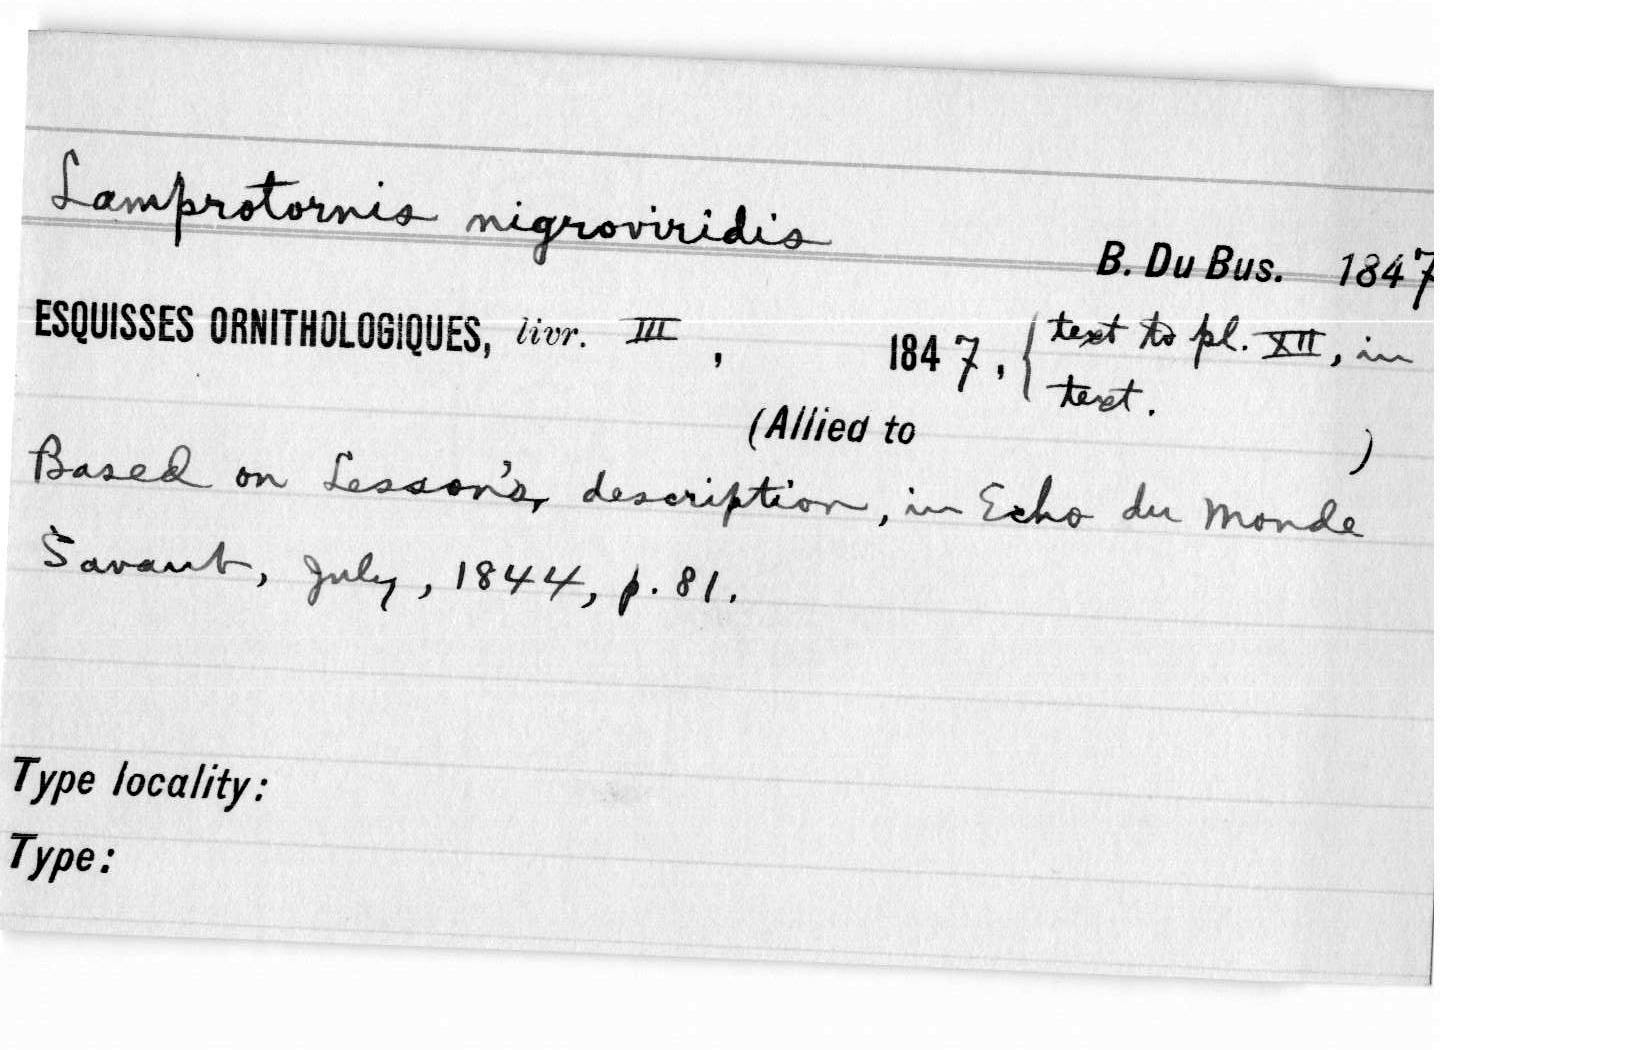 Lamprotornis nigroviridis
B. Du Bus. 1847
ESQUISSES ORNITHOLOGIQUES, livr. III, 1847, { text to pl. XII, in
text.
(Allied to )
Based on Lesson's, description, in Echo du Monde
Savant, July, 1844, p. 81.
Type locality:
Type: